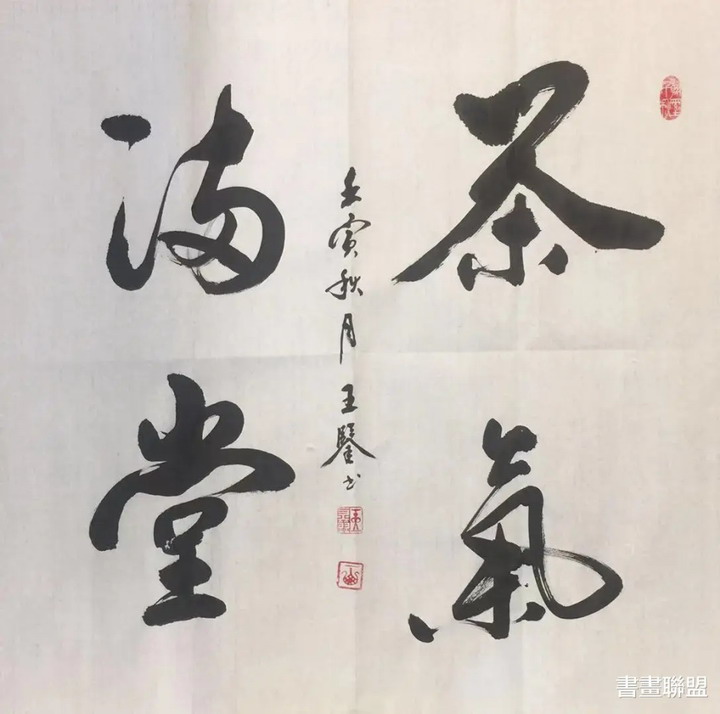 茶氣
满堂
壬寅秋月王鑒书
書畫聯盟